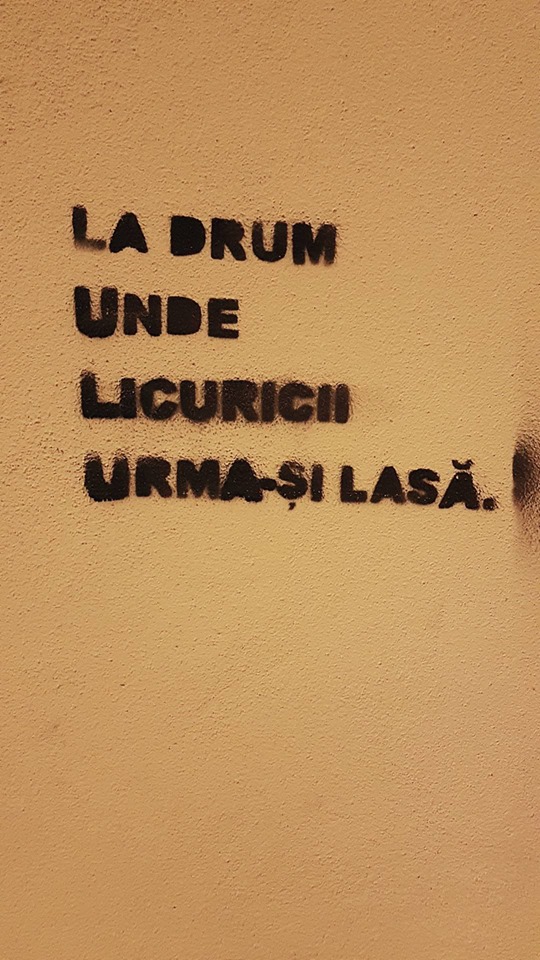 LA DRUM
UNDE
LICURICII
URMA-ȘI LASĂ.